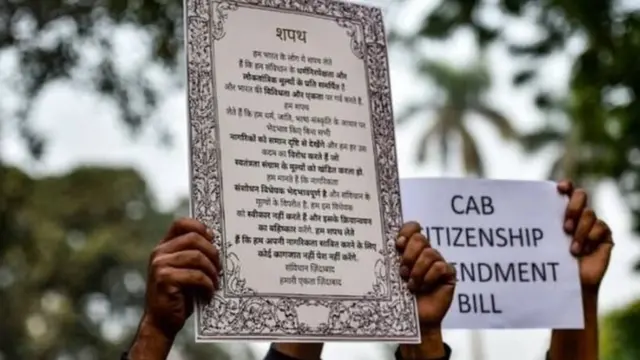 शपथ
हम भारत के लोग ये शपथ लेते
हैं कि हम संविधान के धर्मनिरपेक्षता और
लोकतांत्रिक मूल्यों के प्रति समर्पित है
और भारत की विविधता और एकता पर गर्व करते है.
हम शपथ
लेते हैं कि हम धर्म, जाति, भाषा संस्कृति के आधार पर
भेदभाव किए बिना सभी
नागरिकों को समान दृष्टि से देखेंगे और हम हर उस
कदम का विरोध करते हैं जो
स्वतंत्रता संग्राम के मूल्यों को खंडित करता हो.
हम मानते है कि नागरिकता
संशोधन विधेयक भेदभावपूर्ण है और संविधान के
मूल्यों के विपरीत है. हम इस विधेयक
को स्वीकार नहीं करते हैं और इसके क्रियान्वयन
का बहिष्कार करेंगे. हम शपथ लेते
हैं कि हम अपनी नागरिकता साबित करने के लिए
कोई कागजात नहीं पेश नहीं करेंगे.
संविधान ज़िंदाबाद
हमारी एकता ज़िंदाबाद
CAB
CITIZENSHIP
ENDMENT
BILL